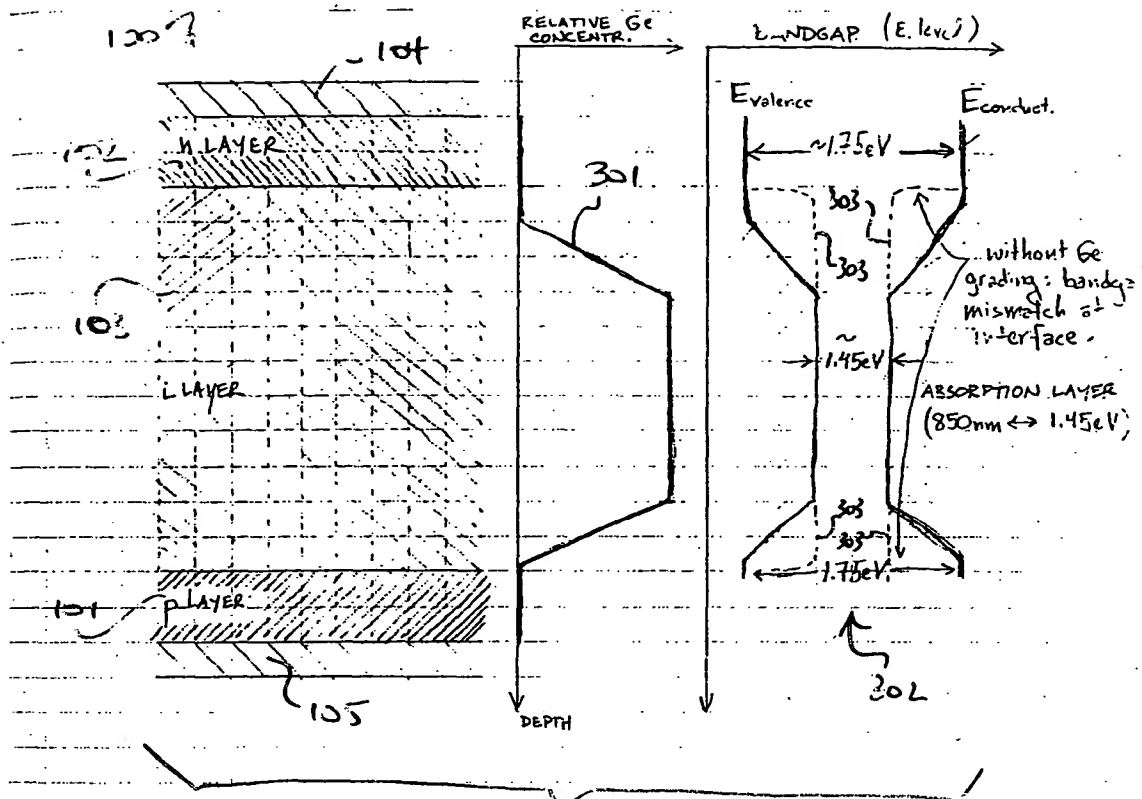 100
104
n LAYER
103
i LAYER
101
p LAYER
105
RELATIVE Ge
CONCENTR.
301
DEPTH
(E. level)
Evalence
Econduct.
~1.75eV
303
303
without Ge
grading:
mismatch at
interface.
~
1.45eV
ABSORPTION LAYER
(850nm ↔ 1.45eV)
303
303
1.75eV
302